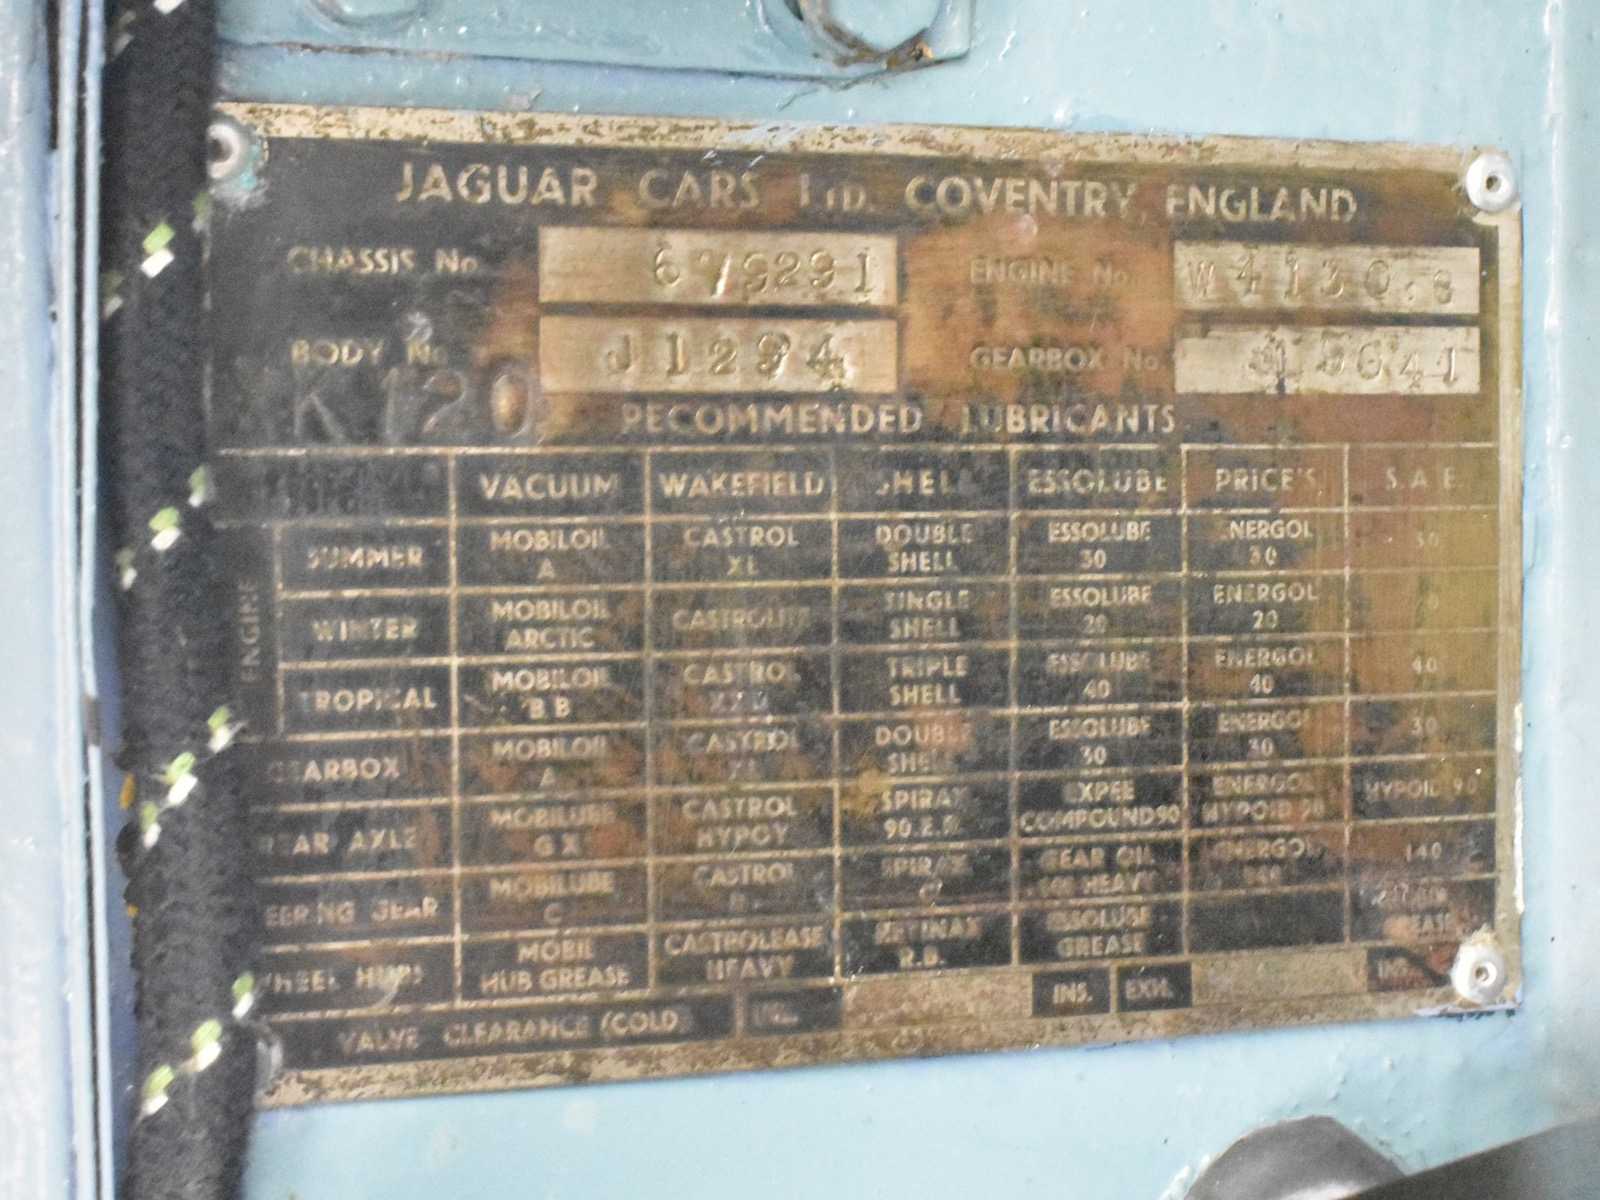 JAGUAR CARS LTD. COVENTRY, ENGLAND
CHASSIS No. 679291 ENGINE No. W4130.8
BODY No. J1294 GEARBOX No.
K 120 RECOMMENDED LUBRICANTS
VACUUM WAKEFIELD SHELL ESSOLUBE PRICE'S S.A.E.
ENGINE
SUMMER MOBILOIL A CASTROL XL DOUBLE SHELL ESSOLUBE 30 ENERGOL 30 30
WINTER MOBILOIL ARCTIC CASTROLITE SINGLE SHELL ESSOLUBE 20 ENERGOL 20
TROPICAL MOBILOIL BB CASTROL TRIPLE SHELL ESSOLUBE 40 ENERGOL 40 40
GEARBOX MOBILOIL A CASTROL XL DOUBLE SHELL ESSOLUBE 30 ENERGOL 30 30
REAR AXLE MOBILUBE GX CASTROL HYPOY SPIRAX 90.E.P. EXPEE COMPOUND 90 ENERGOL HYPOID 90 HYPOID 90
EERING GEAR MOBILUBE C CASTROL SPIRAX C GEAR OIL HEAVY ENERGOL 140 140
WHEEL HUBS MOBIL HUB GREASE CASTROLEASE HEAVY RETINAX R.B. ESSOLUBE GREASE GREASE
VALVE CLEARANCE (COLD) INL. INS. EXH. INS.